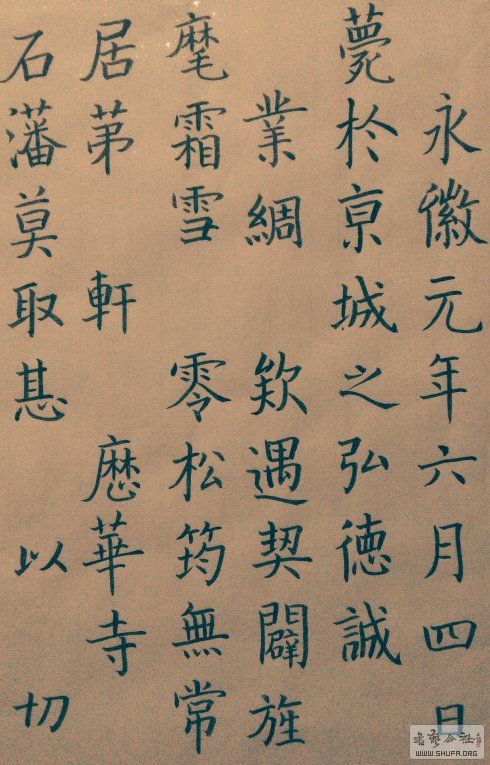 永徽元年六月四日
薨於亰城之弘德誠
業綢 欵遇契闢旌
麾霜雪 零松筠無常
居苐 軒 華寺
石藩莫取 以 切
书艺公社
WWW.SHUFA.ORG